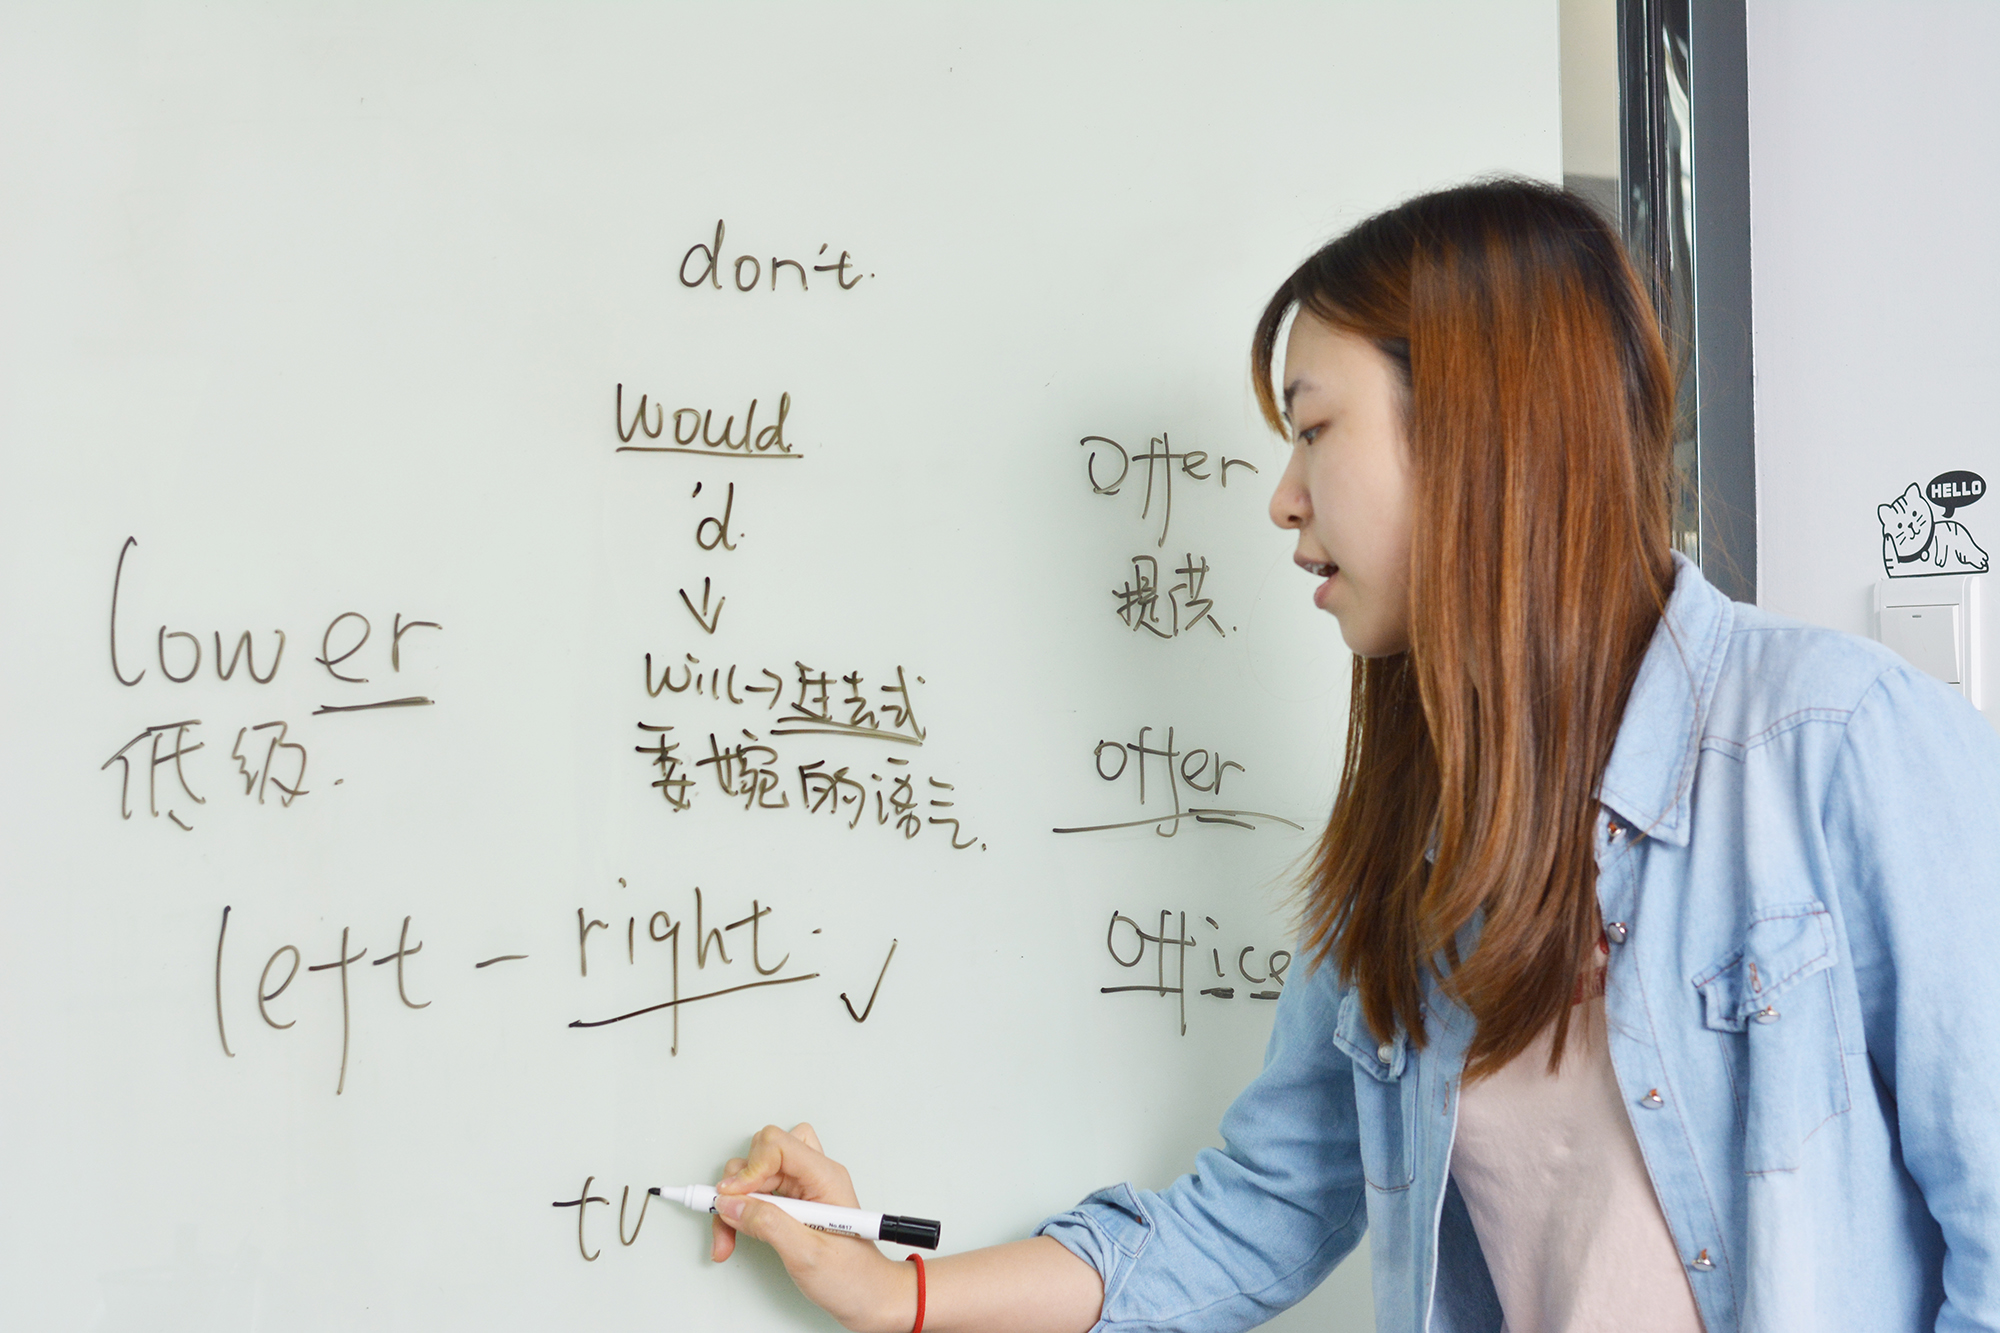 don't.
would.
'd.
↓
will→过去式
委婉的语气.
lower
低级.
left - right. ✓
tv
Offer
提供.
offer
Office
HELLO
No.6817